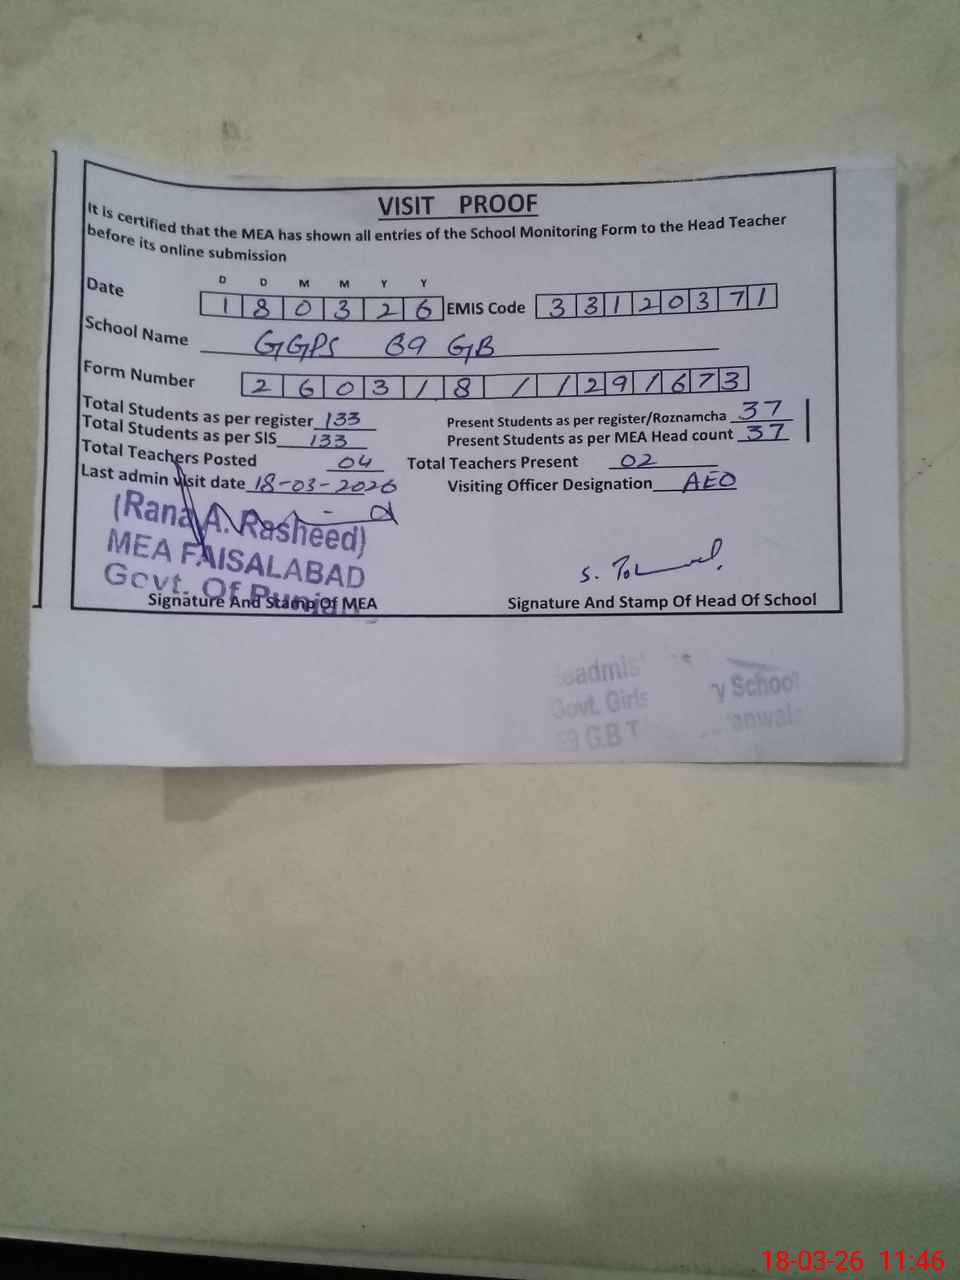 VISIT PROOF
It is certified that the MEA has shown all entries of the School Monitoring Form to the Head Teacher
before its online submission
D D M M Y Y
Date 1 8 0 3 2 6 EMIS Code 3 3 1 2 0 3 7 1
School Name GGPS 69 GB
Form Number 2 6 0 3 1 8 1 1 2 9 1 6 7 3
Total Students as per register 133 Present Students as per register/Roznamcha 37
Total Students as per SIS 133 Present Students as per MEA Head count 37
Total Teachers Posted 04 Total Teachers Present 02
Last admin visit date 18-03-2026 Visiting Officer Designation AEO
(Rana A. Rasheed)
MEA FAISALABAD
Govt. Of Punjab
Signature And Stamp Of MEA Signature And Stamp Of Head Of School
Govt. Girls School
G.B
18-03-26 11:46